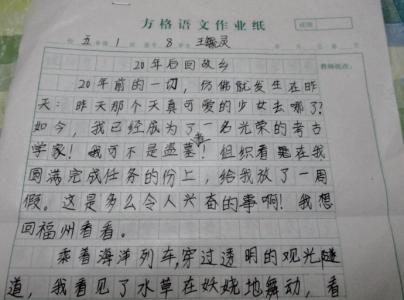 方格语文作业纸
五 1 8 王
20年后回故乡
20年前的一切，仿佛就发生在昨
天：昨天那个天真可爱的少女去哪了？
如今，我已经成为了一名光荣的考古
学家！我可不是盗墓者！组织看在我
圆满完成任务的份上，给我放了一周
假。这是多么令人兴奋的事啊！我想
回福州看看。
乘着海洋列车，穿过透明的观光隧
道，我看见了水草在妖娆地舞动，看